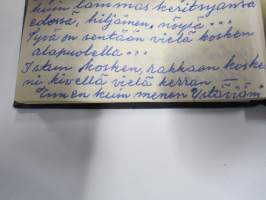 kuin lammas keritsijänsä
edessä, hiljainen, nöyrä...
Syvä on sentään vielä kosken
alapuolella...
Istun kosken, rakkaan koske
ni kivellä vielä kerran
Ennen kuin menen Ystäväni